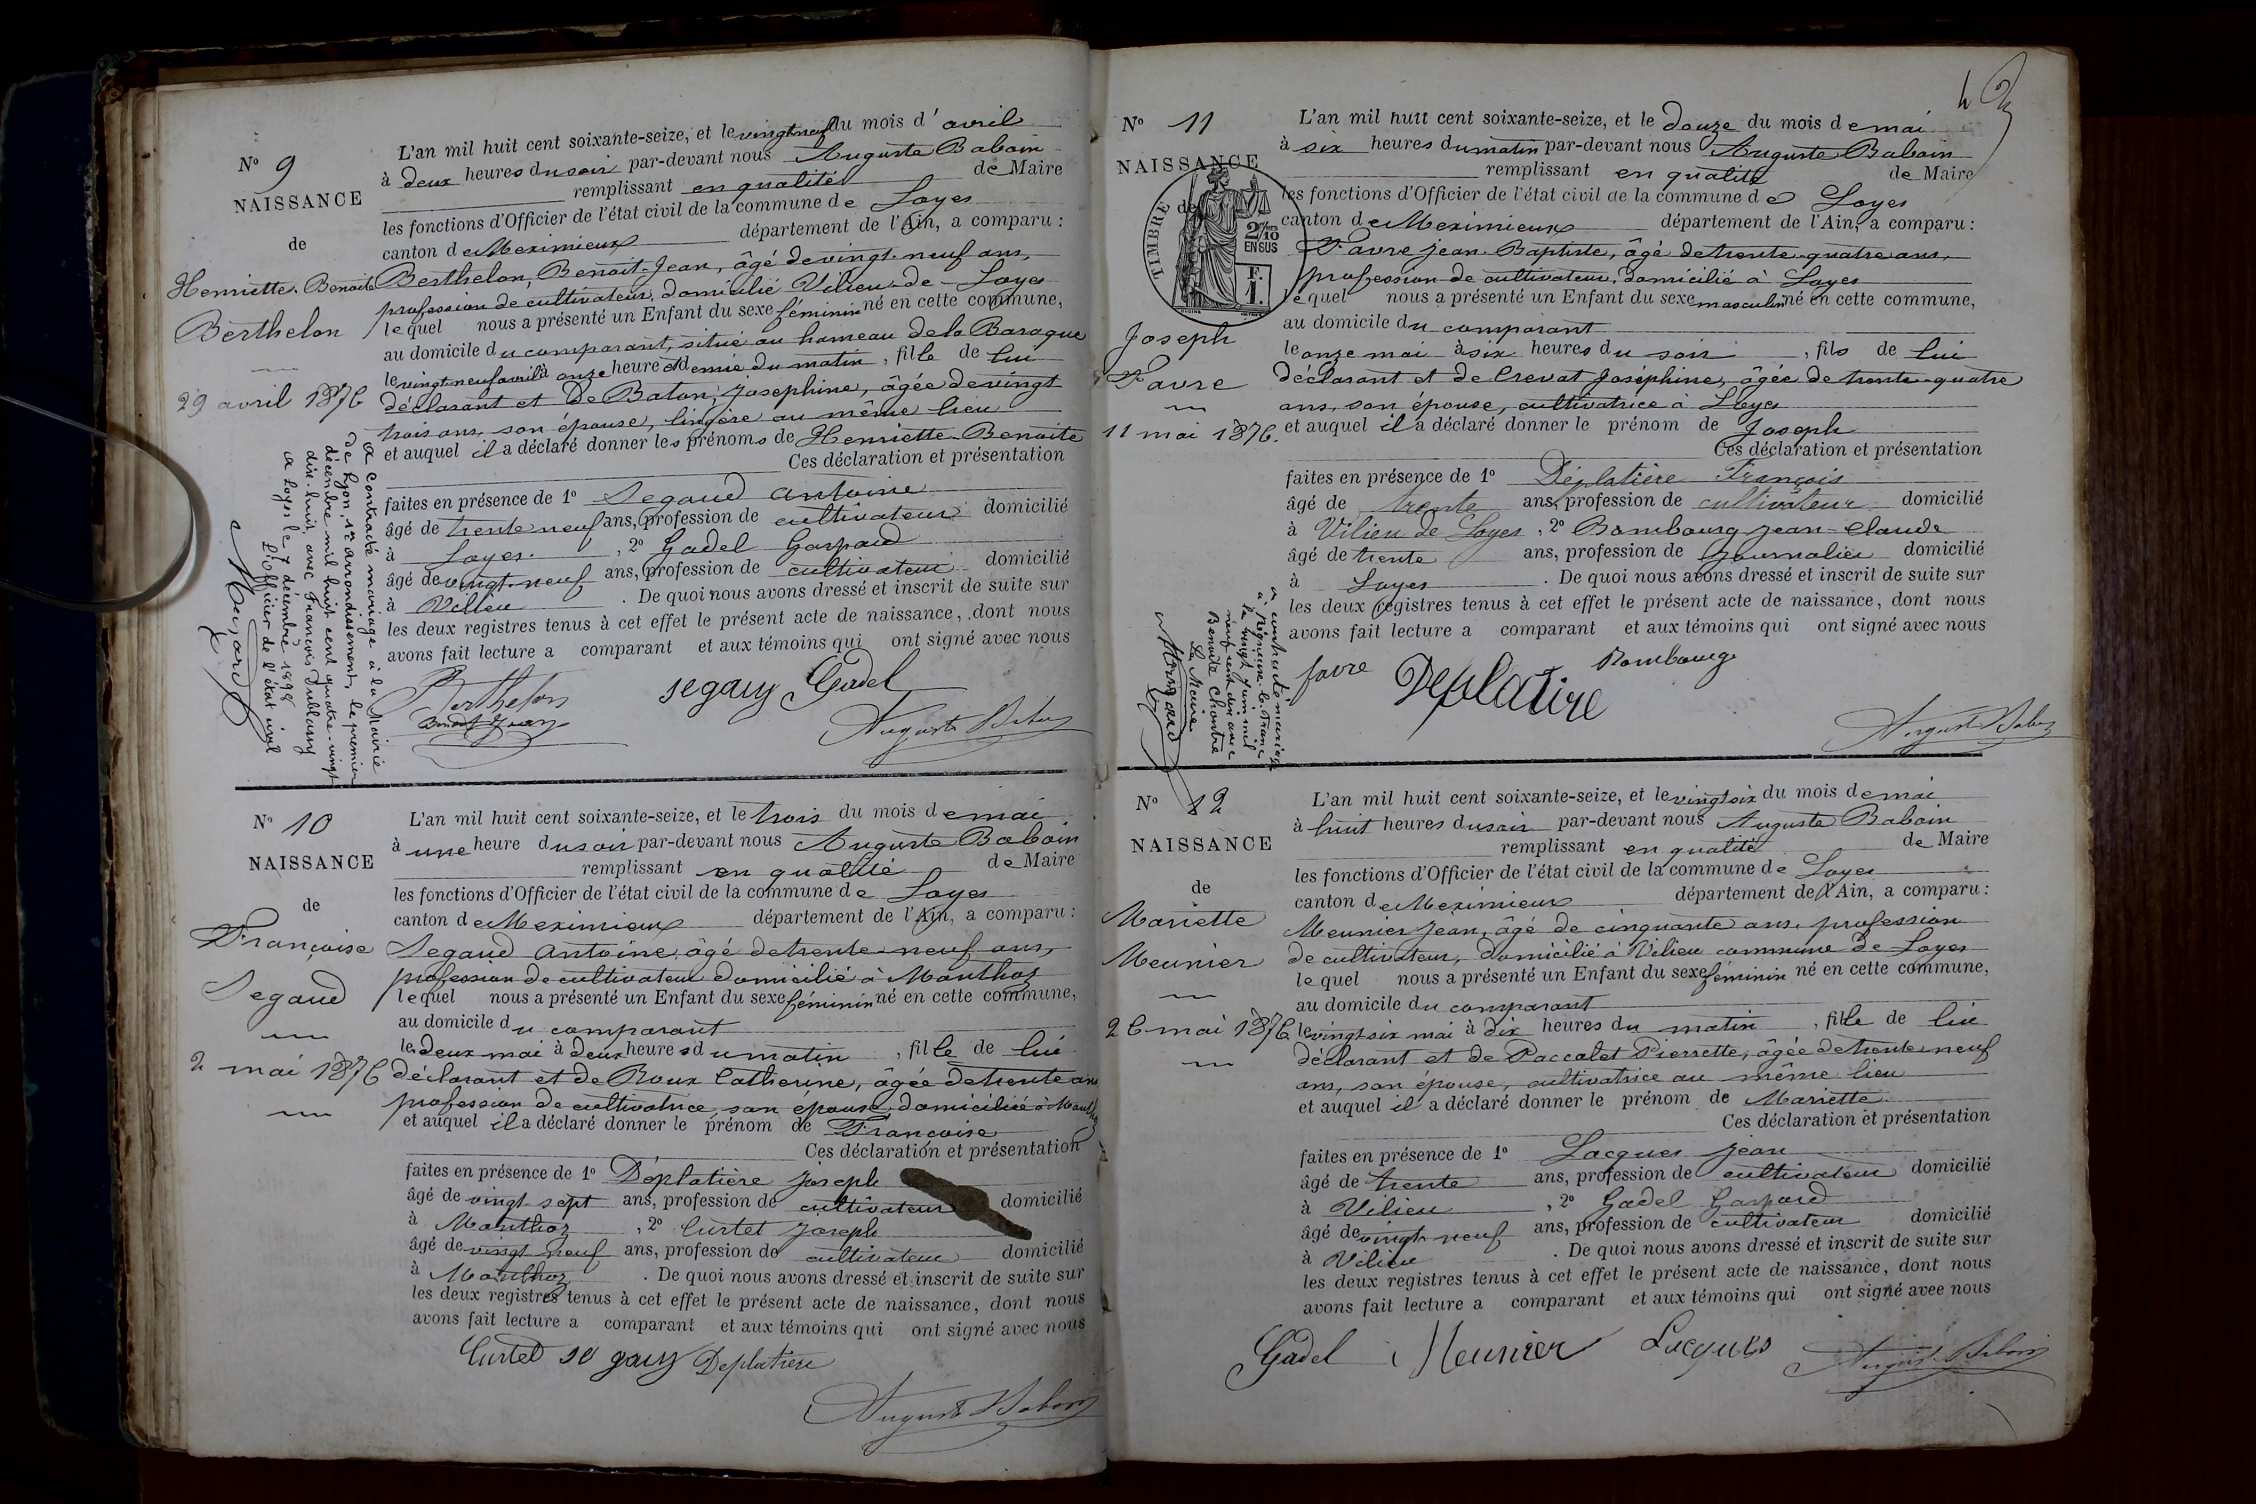 N° 9
NAISSANCE
de
Henriette-Benoite
Berthelon
29 avril 1876
L'an mil huit cent soixante-seize, et le vingt neuf du mois d'avril
à deux heures du soir par-devant nous Auguste Baboin
remplissant en qualité de Maire
les fonctions d'Officier de l'état civil de la commune de Loyes
canton de Meximieux département de l'Ain, a comparu :
Berthelon, Benoit-Jean, âgé de vingt-neuf ans,
profession de cultivateur, domicilié Vilieu-de-Loyes
lequel nous a présenté un Enfant du sexe féminin né en cette commune,
au domicile du comparant, situé au hameau de la Baraque
le vingt neuf avril à onze heure et demie du matin, fille de lui
déclarant et de Baton, Josephine, âgée de vingt
trois ans, son épouse, lingère au même lieu
et auquel il a déclaré donner les prénoms de Henriette-Benoite
Ces déclaration et présentation
faites en présence de 1° Segaud Antoine
âgé de trente neuf ans, profession de cultivateur domicilié
à Loyes, 2° Gadel Gaspard
âgé de vingt-neuf ans, profession de cultivateur domicilié
à Vilieu. De quoi nous avons dressé et inscrit de suite sur
les deux registres tenus à cet effet le présent acte de naissance, dont nous
avons fait lecture a comparant et aux témoins qui ont signé avec nous
Berthelon segauy Gadel
Benoit Jean Auguste Baboin
a contracté mariage à la Mairie
de Lyon, 1er arrondissement, le premier
décembre mil huit cent quatre-vingt
dix-huit, avec François Dublassy
a Loyes le 7 décembre 1898
L'Officier de l'état civil
N° 10
NAISSANCE
de
Françoise
Segaud
2 mai 1876
L'an mil huit cent soixante-seize, et le trois du mois de mai
à une heure du soir par-devant nous Auguste Baboin
remplissant en qualité de Maire
les fonctions d'Officier de l'état civil de la commune de Loyes
canton de Meximieux département de l'Ain, a comparu :
Segaud Antoine, âgé de trente-neuf ans,
profession de cultivateur domicilié à Monthoz
lequel nous a présenté un Enfant du sexe féminin né en cette commune,
au domicile du comparant
le deux mai à deux heures du matin, fille de lui
déclarant et de Roux Catherine, âgée de trente ans
profession de cultivatrice, son épouse, domiciliée à Monthoz
et auquel il a déclaré donner le prénom de Françoise
Ces déclaration et présentation
faites en présence de 1° Déplatière Joseph
âgé de vingt sept ans, profession de cultivateur domicilié
à Monthoz, 2° Curtet Joseph
âgé de vingt neuf ans, profession de cultivateur domicilié
à Monthoz. De quoi nous avons dressé et inscrit de suite sur
les deux registres tenus à cet effet le présent acte de naissance, dont nous
avons fait lecture a comparant et aux témoins qui ont signé avec nous
Curtet se gauy Deplatiere
Auguste Baboin
4
N° 11
NAISSANCE
de
TIMBRE
2/10
EN SUS
Joseph
Favre
11 mai 1876.
L'an mil huit cent soixante-seize, et le douze du mois de mai
à six heures du matin par-devant nous Auguste Baboin
remplissant en qualité de Maire
les fonctions d'Officier de l'état civil de la commune de Loyes
canton de Meximieux département de l'Ain, a comparu :
Favre Jean-Baptiste, âgé de trente-quatre ans,
profession de cultivateur, domicilié à Loyes
lequel nous a présenté un Enfant du sexe masculin né en cette commune,
au domicile du comparant
le onze mai à six heures du soir, fils de lui
déclarant et de Crevat Joséphine, âgée de trente-quatre
ans, son épouse, cultivatrice à Loyes
et auquel il a déclaré donner le prénom de Joseph
Ces déclaration et présentation
faites en présence de 1° Déplatière François
âgé de trente ans, profession de cultivateur domicilié
à Vilieu de Loyes, 2° Bombourg Jean-Claude
âgé de trente ans, profession de Journalier domicilié
à Loyes. De quoi nous avons dressé et inscrit de suite sur
les deux registres tenus à cet effet le présent acte de naissance, dont nous
avons fait lecture a comparant et aux témoins qui ont signé avec nous
favre Deplatire Bombourg
Auguste Baboin
a contracté mariage
le vingt Juin mil
neuf cent deux avec
Benoite
Le Maire
N° 12
NAISSANCE
de
Mariette
Meunier
26 mai 1876
L'an mil huit cent soixante-seize, et le vingt six du mois de mai
à huit heures du soir par-devant nous Auguste Baboin
remplissant en qualité de Maire
les fonctions d'Officier de l'état civil de la commune de Loyes
canton de Meximieux département de l'Ain, a comparu :
Meunier Jean, âgé de cinquante ans, profession
de cultivateur, domicilié à Vilieu commune de Loyes
lequel nous a présenté un Enfant du sexe féminin né en cette commune,
au domicile du comparant
le vingt six mai à dix heures du matin, fille de lui
déclarant et de Paccalet Pierrette, âgée de trente-neuf
ans, son épouse, cultivatrice au même lieu
et auquel il a déclaré donner le prénom de Mariette
Ces déclaration et présentation
faites en présence de 1° Lacques Jean
âgé de trente ans, profession de cultivateur domicilié
à Vilieu, 2° Gadel Gaspard
âgé de vingt-neuf ans, profession de cultivateur domicilié
à Vilieu. De quoi nous avons dressé et inscrit de suite sur
les deux registres tenus à cet effet le présent acte de naissance, dont nous
avons fait lecture a comparant et aux témoins qui ont signé avec nous
Gadel Meunier Lacques Auguste Baboin